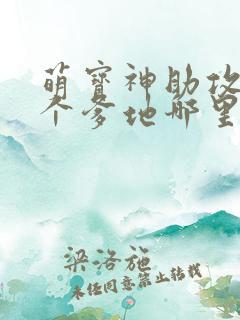 萌宝神助攻
个爹地哪里
梁洛施
未经同意禁止转载